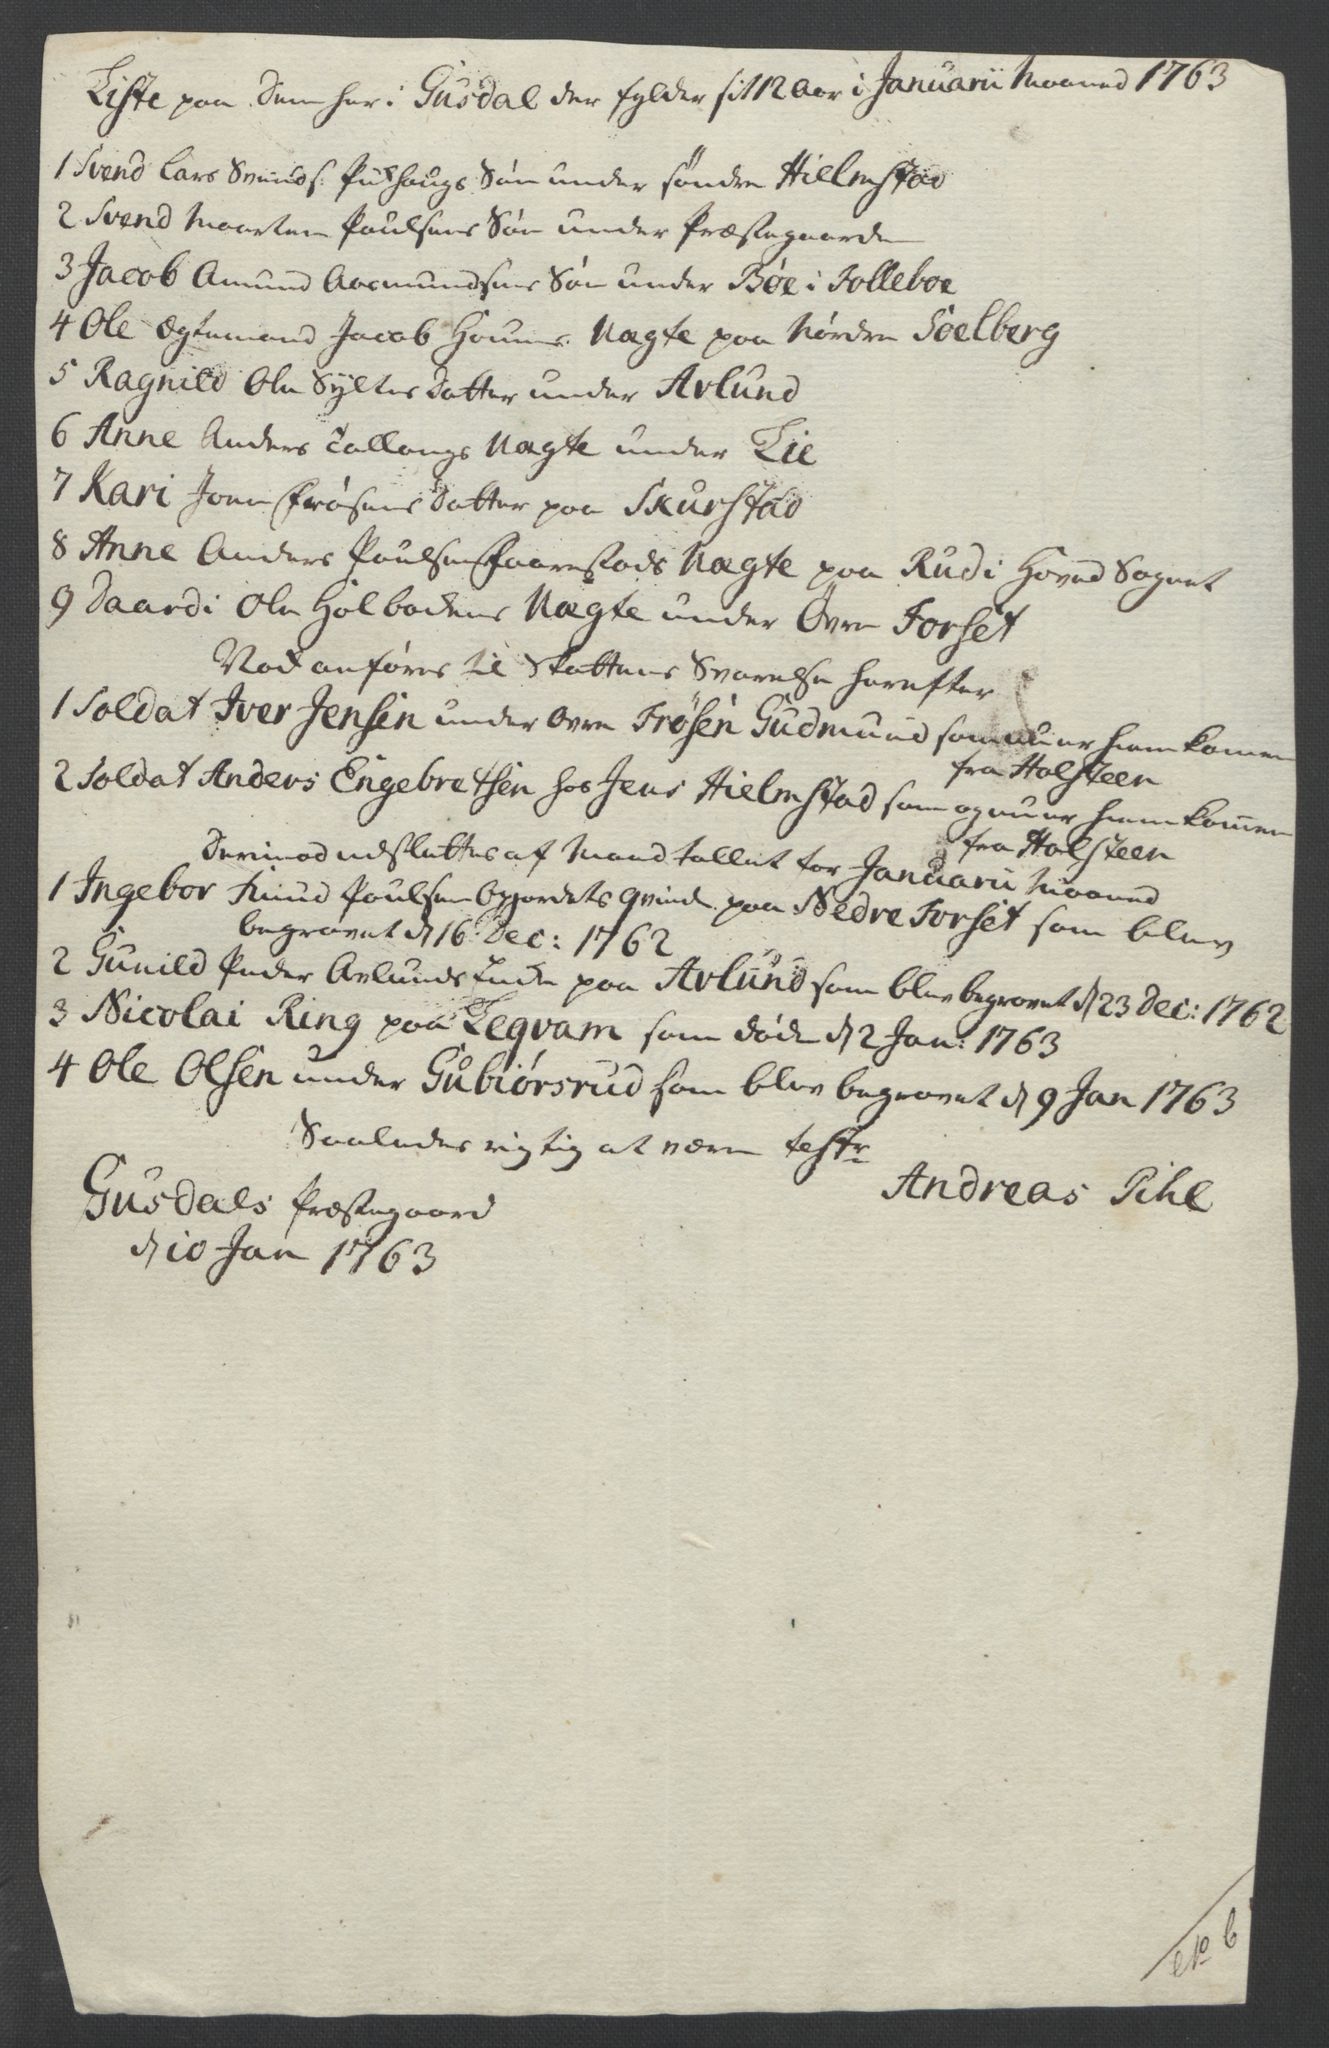 Liste paa Dem her i Gusdal der fylder sit 12 Aar i Januarii Maaned 1763
1 Svend Lars Svends: Pukhaugs Søn under søndre Hielmstad
2 Svend Maarten Poulsens Søn under Præstegaarden
3 Jacob Amund Aasmundsens Søn under Bøe i Folleboe
4 Ole Ægtemand Jacob Houns Nægte paa Nørdre Soelberg
5 Ragnild Ole Syltes Datter under Avlund
6 Anne Anders Nægte under Lie
7 Kari Joen Frøsens Datter paa Skurstad
8 Anne Anders Poulsen Faarestads Nægte paa Rud i Hoved Sognet
9 Daardi Ole Holbadens Nægte under Øvre Forset
Nok anføres til Skattens Svarelse herefter
1 Soldat Iver Jensen under Øvre Frøsen Gudmund som nu er hiemkommen
fra Holsteen
2 Soldat Anders Engebretsen hos Jens Hielmstad som og nu er hiemkommen
fra Holsteen
Derimod udslettes af Mandtallet for Januarii Maaned
1 Ingebor Knud Poulsen Opjordets Qvinde paa Nedre Forset som blev
begravet d 16 Dec: 1762
2 Gunild Peder Avlunds Enke paa Avlund som blev begravet d 23 Dec: 1762
3 Nicolai Ring paa Legvam som døde d 2 Jan: 1763
4 Ole Olsen under Gubiørsrud som blev begravet d 9 Jan 1763
Saaledes rigtig at være testr
Andreas Pihl
Gusdals Præstegaard
d 10 Jan 1763
No 6